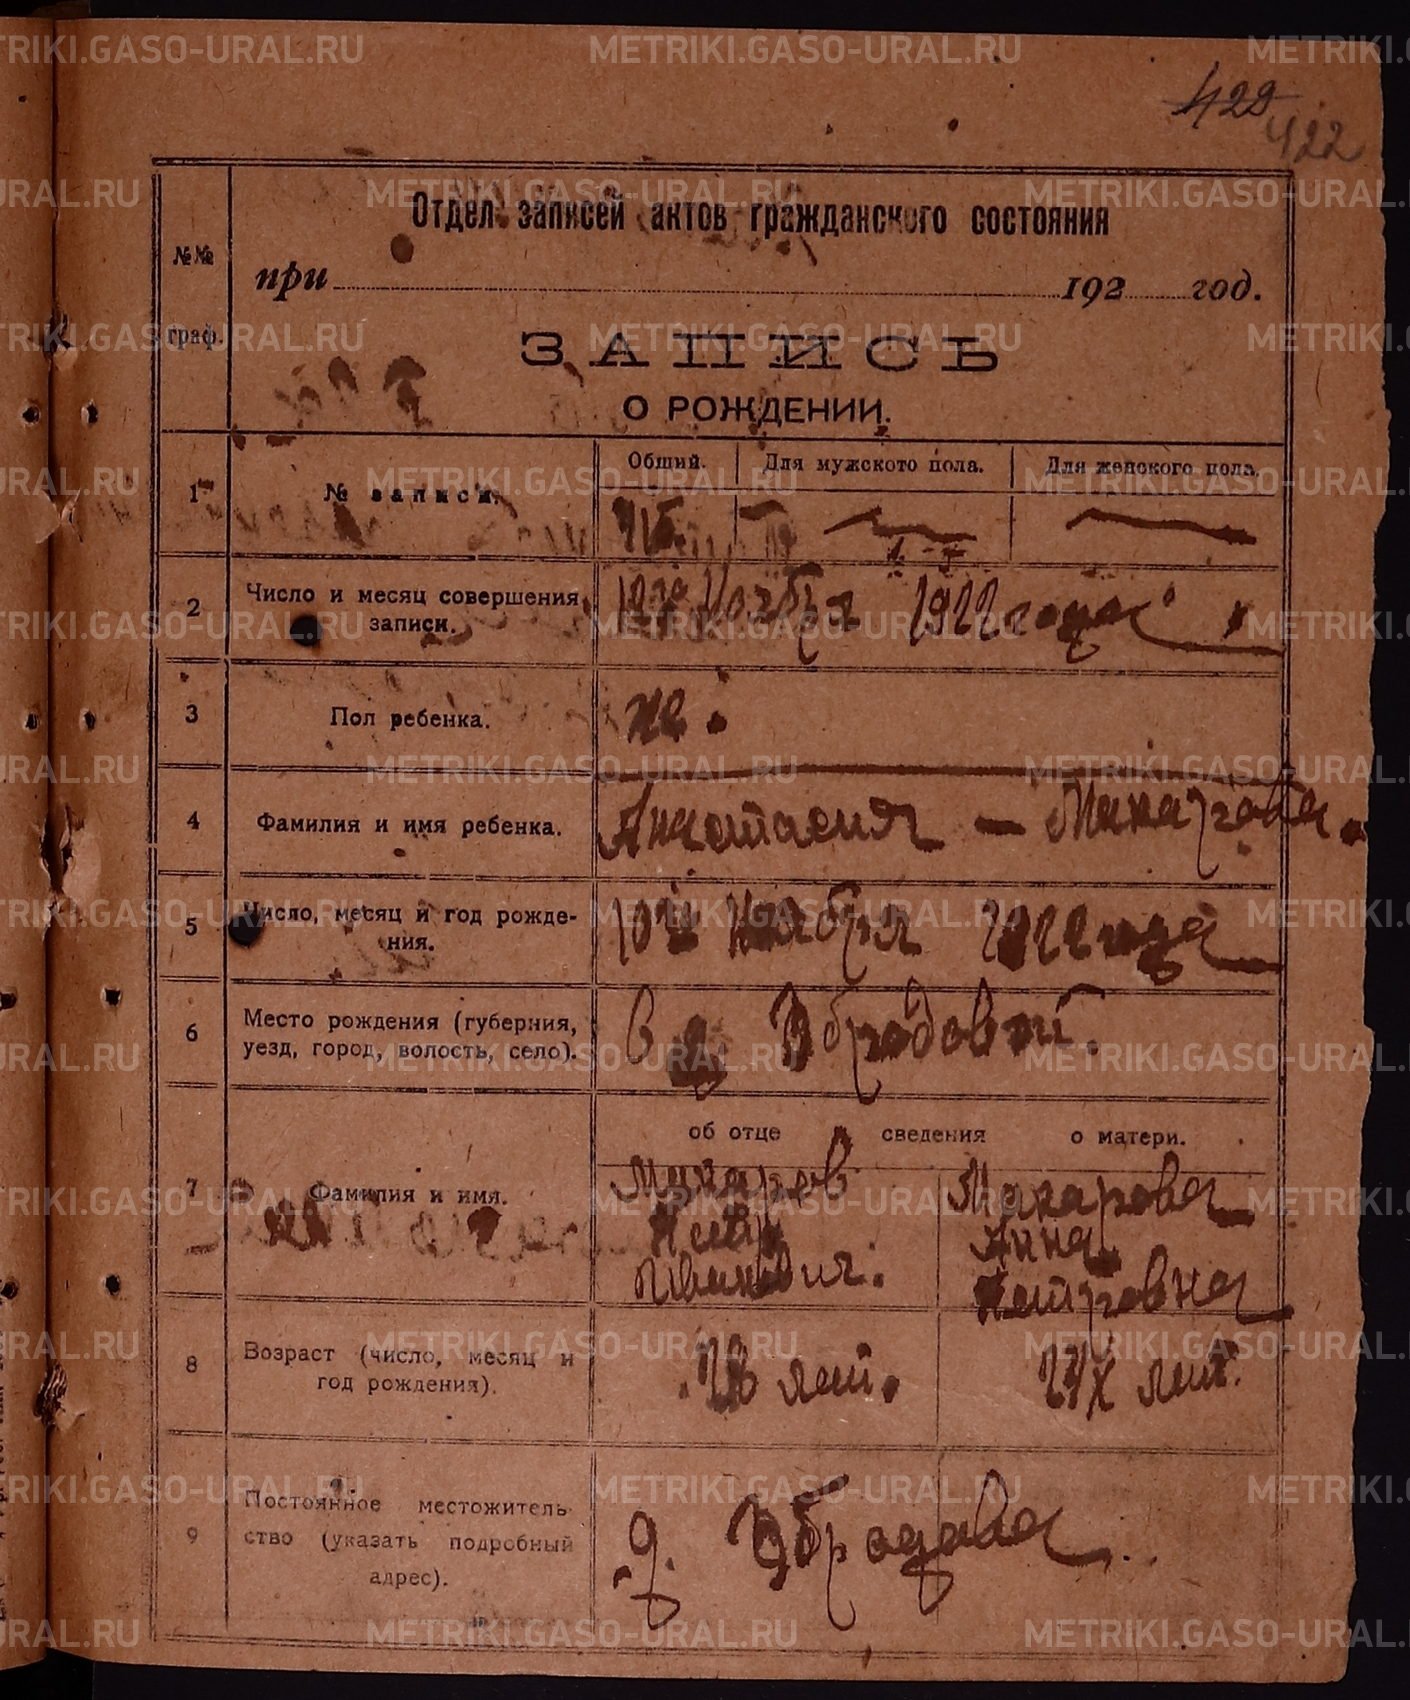 METRIKI.GASO-URAL.RU
429
422
№№ граф.
Отдел записей актов гражданского состояния
при 192 год.
ЗАПИСЬ
О РОЖДЕНИИ.
1
№ записи.
Общий. Для мужского пола. Для женского пола.
2
Число и месяц совершения
записи.
Ноября 1922 года
3
Пол ребенка.
же.
4
Фамилия и имя ребенка.
Анастасия — Макарова.
5
Число, месяц и год рожде-
ния.
10го Ноября 1922 года
6
Место рождения (губерния,
уезд, город, волость, село).
в д. Обродовой.
об отце сведения о матери.
7
Фамилия и имя.
Макаров
Макарова
Анна
Петровна
8
Возраст (число, месяц и
год рождения).
28 лет.
24х лет.
9
Постоянное местожитель-
ство (указать подробный
адрес).
д. Обродова